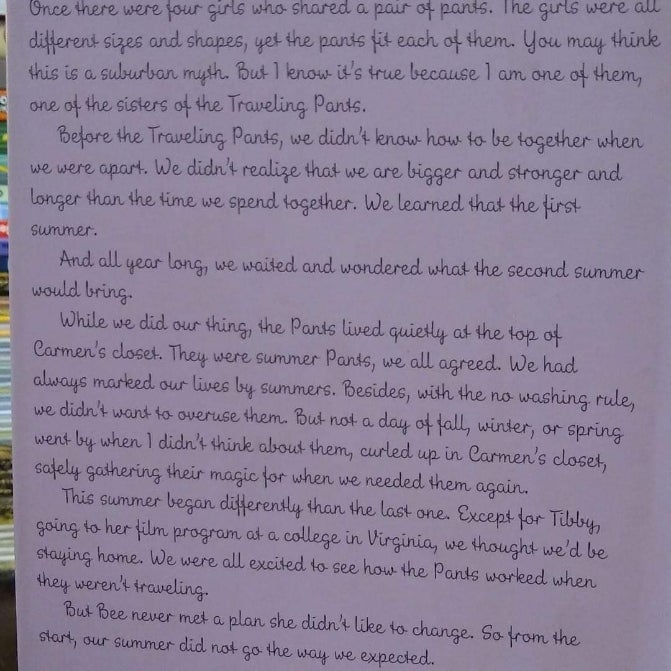 Once there were four girls who shared a pair of pants. The girls were all
different sizes and shapes, yet the pants fit each of them. You may think
this is a suburban myth. But I know it's true because I am one of them,
one of the sisters of the Traveling Pants.
Before the Traveling Pants, we didn't know how to be together when
we were apart. We didn't realize that we are bigger and stronger and
longer than the time we spend together. We learned that the first
summer.
And all year long, we waited and wondered what the second summer
would bring.
While we did our thing, the Pants lived quietly at the top of
Carmen's closet. They were summer Pants, we all agreed. We had
always marked our lives by summers. Besides, with the no washing rule,
we didn't want to overuse them. But not a day of fall, winter, or spring
went by when I didn't think about them, curled up in Carmen's closet,
safely gathering their magic for when we needed them again.
This summer began differently than the last one. Except for Tibby,
going to her film program at a college in Virginia, we thought we'd be
staying home. We were all excited to see how the Pants worked when
they weren't traveling.
But Bee never met a plan she didn't like to change. So from the
start, our summer did not go the way we expected.